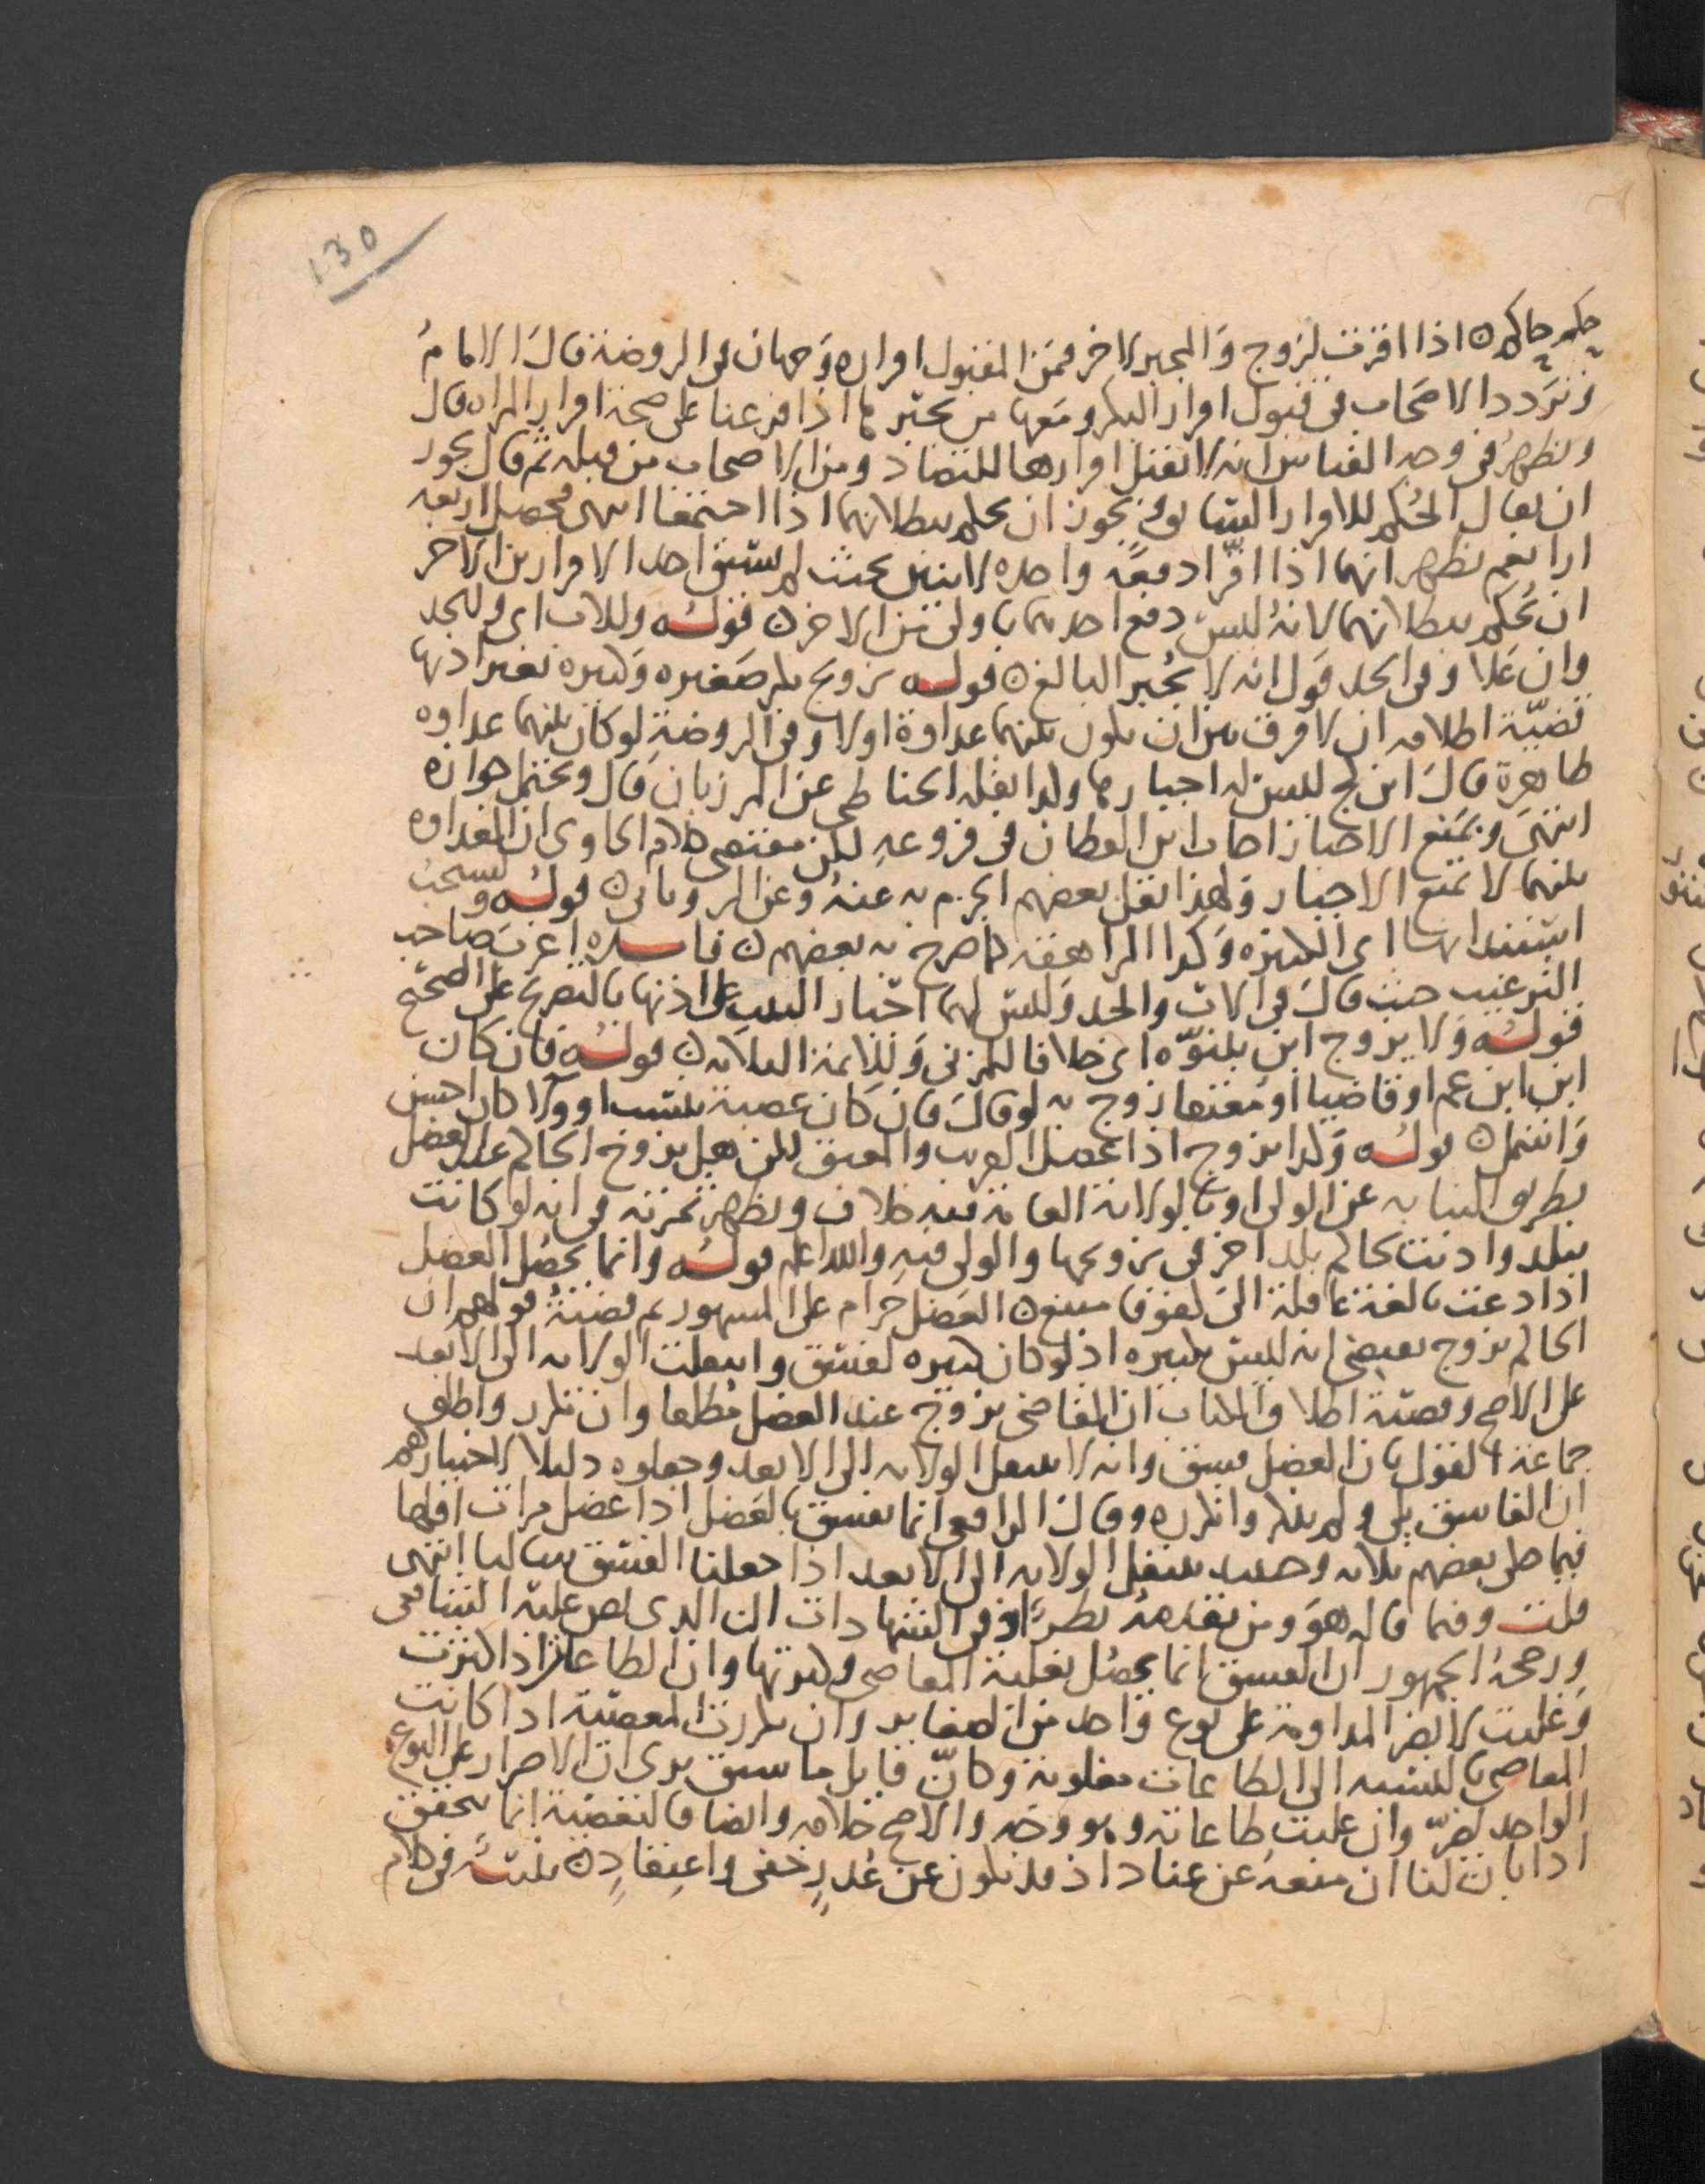 130
حكم حاكم ن اذا اقرت لزوج والمجبر لاخر فمن المقبول اقراره وجهان في الروضة قال الامام
وتردد الاصحاب في قبول اقرار البكر ومعها من يجبر ها اذا فرعنا على صحة اقرار المراه قال
ويظهر في وجه القياس انه لا نقبل اقرارها للتضاد ومن الاصحاب من قبله ثم قال يجوز
ان يقال الحكم للاقرار السابق ويجوز ان يحكم ببطلانهما اذا اجتمعا انتهى فحصل اربعة
ارا نعم يظهر انهما اذا اقرا دفعة واحده لاثنين بحيث لم يسبق احد الاقرارين الاخر
ان يحكم ببطلانهما لانه ليس دفع احدهما باولى من الاخر ن قوله وللاب اى وللجد
وان علا وفي الجد قول انه لا يجبر البالغ ن قوله تزويج بكر صغيره وكبيره بغير اذنها
قضية اطلاقه ان لا فرق بين ان يكون بينهما عداوة اولا وفي الروضة لو كان بينهما عداوه
ظاهرة قال ابن كج ليس له اجبارها وكذا نقله الحناطي عن المرزبان قال ويحتمل جوازه
انتهى وبمنع الاجبار اجاب ابن القطان في فروعه لكن مقتضى كلام الحاوى ان العداوه
بينهما لا تمنع الاجبار ولهذا نقل بعضهم الجزم به عنه وعن الروياني ن قوله ويستحب
استئذانها اى الكبيره وكذا المراهقه كما صرح به بعضهم ن فايده اعرب صاحب
الترغيب حيث قال في الاب والجد وليس لهما اجبار الثيب على اذنها بالتصريح على الصحيح
قوله ولا يزوج ابن ببنوه اى خلافا للمزني وللايمة الثلاثه ن قوله فان كان
ابن ابن عم او قاضيا او معتقا زوج به لو قال فان كان عصبة بنسب او ولا كان احسن
واشمل ن قوله وكذا يزوج اذا عضل القريب والمعتق لكن هل يزوج الحاكم عند العضل
بطريق النيابه عن الولى او بالولاية العامة فيه خلاف ويظهر ثمرته في انه لو كانت
ببلد واذنت لحاكم بلد اخر في تزويجها والولى فيه والله اعلم قوله وانما يحصل العضل
اذا دعت بالغة عاقلة الى كفو فامتنع ن العضل حرام على المشهور ثم قضية قولهم ان
الحاكم يزوج يقتضى انه ليس بكبيره اذ لو كان كبيره لفسق وانتقلت الولايه الى الابعد
على الاصح وقضية اطلاق الكتاب ان القاضى يزوج عند العضل مطلقا وان تكرر واطلق
جماعة القول بان العضل فسق وانه لا ينتقل الولايه الى الابعد وجعلوه دليلا لاختيارهم
ان الفاسق يلى ولم ينكر وانكره وقال الرافعى انما يفسق بالعضل اذا عضل مرات اقلها
فيما حكى بعضهم ثلاثه وحينئذ ينتقل الولايه الى الابعد اذا جعلنا الفسق سالبا انتهى
قلت وفيما قاله هو ومن تقدمه نظر اذ في الشهادات ان الذى نص عليه الشافعى
ورجحه الجمهور ان الفسق انما يحصل بغلبة المعاصى وكثرتها وان الطاعات اذا كثرت
وغلبت لا يضر المداومة على نوع واحد من الصغاير وان تكررت المعصية اذا كانت
المعاصى بالنسبه الى الطاعات مغلوبة وكان قايل ما سبق يرى ان الاصرار على النوع
الواحد يضر وان غلبت طاعاته وهو وجه والاصح خلافه وايضا فالتعصية انما تتحقق
اذا بان لنا ان منعه عن عناد اذ قد يكون عن عذر خفى واعتقاد ن تنبيه في كلام